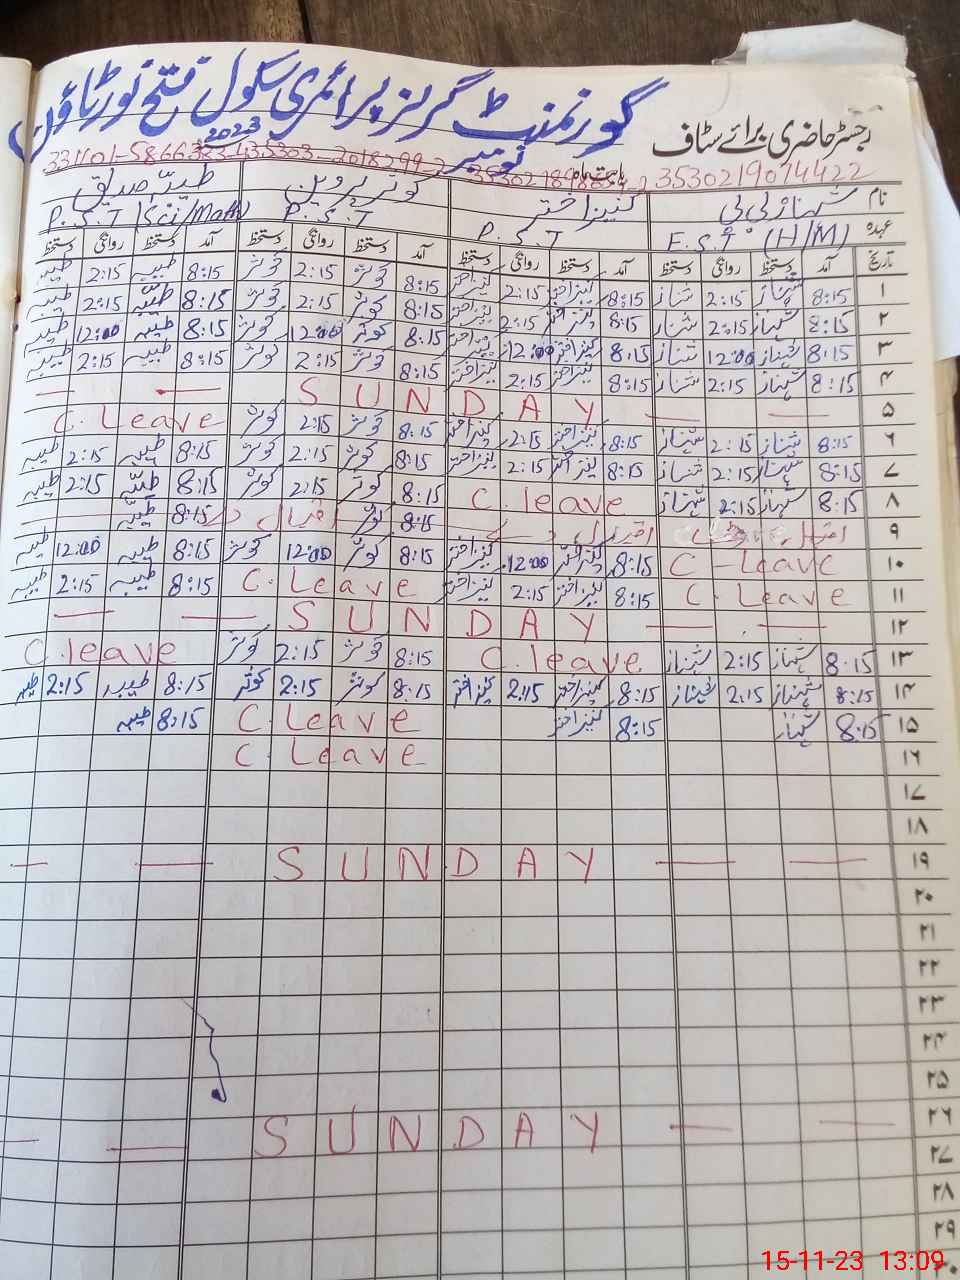 گورنمنٹ گرلز پرائمری سکول فتح نور ٹاؤن
رجسٹر حاضری برائے سٹاف
نومبر 2023
3530219074422
نام شہناز بی بی کنیز اختر کوثر پروین طیبہ صدیق
عہدہ E.S.T (H/M) P.S.T P.S.T P.S.T (Sci/Math)
تاریخ آمد دستخط روانگی دستخط آمد دستخط روانگی دستخط آمد دستخط روانگی دستخط آمد دستخط روانگی دستخط
۱ 8:15 شہناز 2:15 شہناز 8:15 کنیز اختر 2:15 کنیز اختر 8:15 کوثر 2:15 کوثر 8:15 طیبہ 2:15 طیبہ
۲ 8:15 شہناز 2:15 شہناز 8:15 کنیز اختر 2:15 کنیز اختر 8:15 کوثر 2:15 کوثر 8:15 طیبہ 2:15 طیبہ
۳ 8:15 شہناز 12:00 شہناز 8:15 کنیز اختر 12:00 کنیز اختر 8:15 کوثر 12:00 کوثر 8:15 طیبہ 12:00 طیبہ
۴ 8:15 شہناز 2:15 شہناز 8:15 کنیز اختر 2:15 کنیز اختر 8:15 کوثر 2:15 کوثر 8:15 طیبہ 2:15 طیبہ
۵ — — S U N D A Y — —
۶ 8:15 شہناز 2:15 شہناز 8:15 کنیز اختر 2:15 کنیز اختر 8:15 کوثر 2:15 کوثر C. Leave
۷ 8:15 شہناز 2:15 شہناز 8:15 کنیز اختر 2:15 کنیز اختر 8:15 کوثر 2:15 کوثر 8:15 طیبہ 2:15 طیبہ
۸ 8:15 شہناز 2:15 شہناز C. leave 8:15 کوثر 2:15 کوثر 8:15 طیبہ 2:15 طیبہ
۹ اقبال ڈے 8:15 کوثر اقبال ڈے 8:15 طیبہ
۱۰ C - Leave 8:15 کنیز اختر 12:00 کنیز اختر 8:15 کوثر 12:00 کوثر 8:15 طیبہ 12:00 طیبہ
۱۱ C. Leave 8:15 کنیز اختر 2:15 کنیز اختر C. Leave 8:15 طیبہ 2:15 طیبہ
۱۲ — — S U N D A Y — —
۱۳ 8:15 شہناز 2:15 شہناز C. leave 8:15 کوثر 2:15 کوثر C. leave
۱۴ 8:15 شہناز 2:15 شہناز 8:15 کنیز اختر 2:15 کنیز اختر 8:15 کوثر 2:15 کوثر 8:15 طیبہ 2:15 طیبہ
۱۵ 8:15 شہناز 8:15 کنیز اختر C. Leave 8:15 طیبہ
۱۶ C. Leave
۱۷
۱۸
۱۹ — — S U N D A Y — —
۲۰
۲۱
۲۲
۲۳
۲۴
۲۵
۲۶ — — S U N D A Y — —
۲۷
۲۸
۲۹
۳۰
15-11-23 13:09